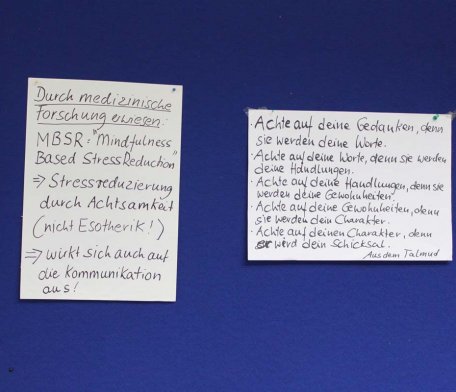 Durch medizinische
Forschung erwiesen:
MBSR: "Mindfulness
Based StressReduction"
⇒ Stressreduzierung
durch Achtsamkeit
(nicht Esotherik!)
⇒ wirkt sich auch auf
die Kommunikation
aus!
· Achte auf deine Gedanken, denn
sie werden deine Worte.
· Achte auf deine Worte, denn sie werden
deine Handlungen.
· Achte auf deine Handlungen, denn sie
werden deine Gewohnheiten.
· Achte auf deine Gewohnheiten, denn
sie werden dein Charakter.
· Achte auf deinen Charakter, denn
er wird dein Schicksal.
Aus dem Talmud